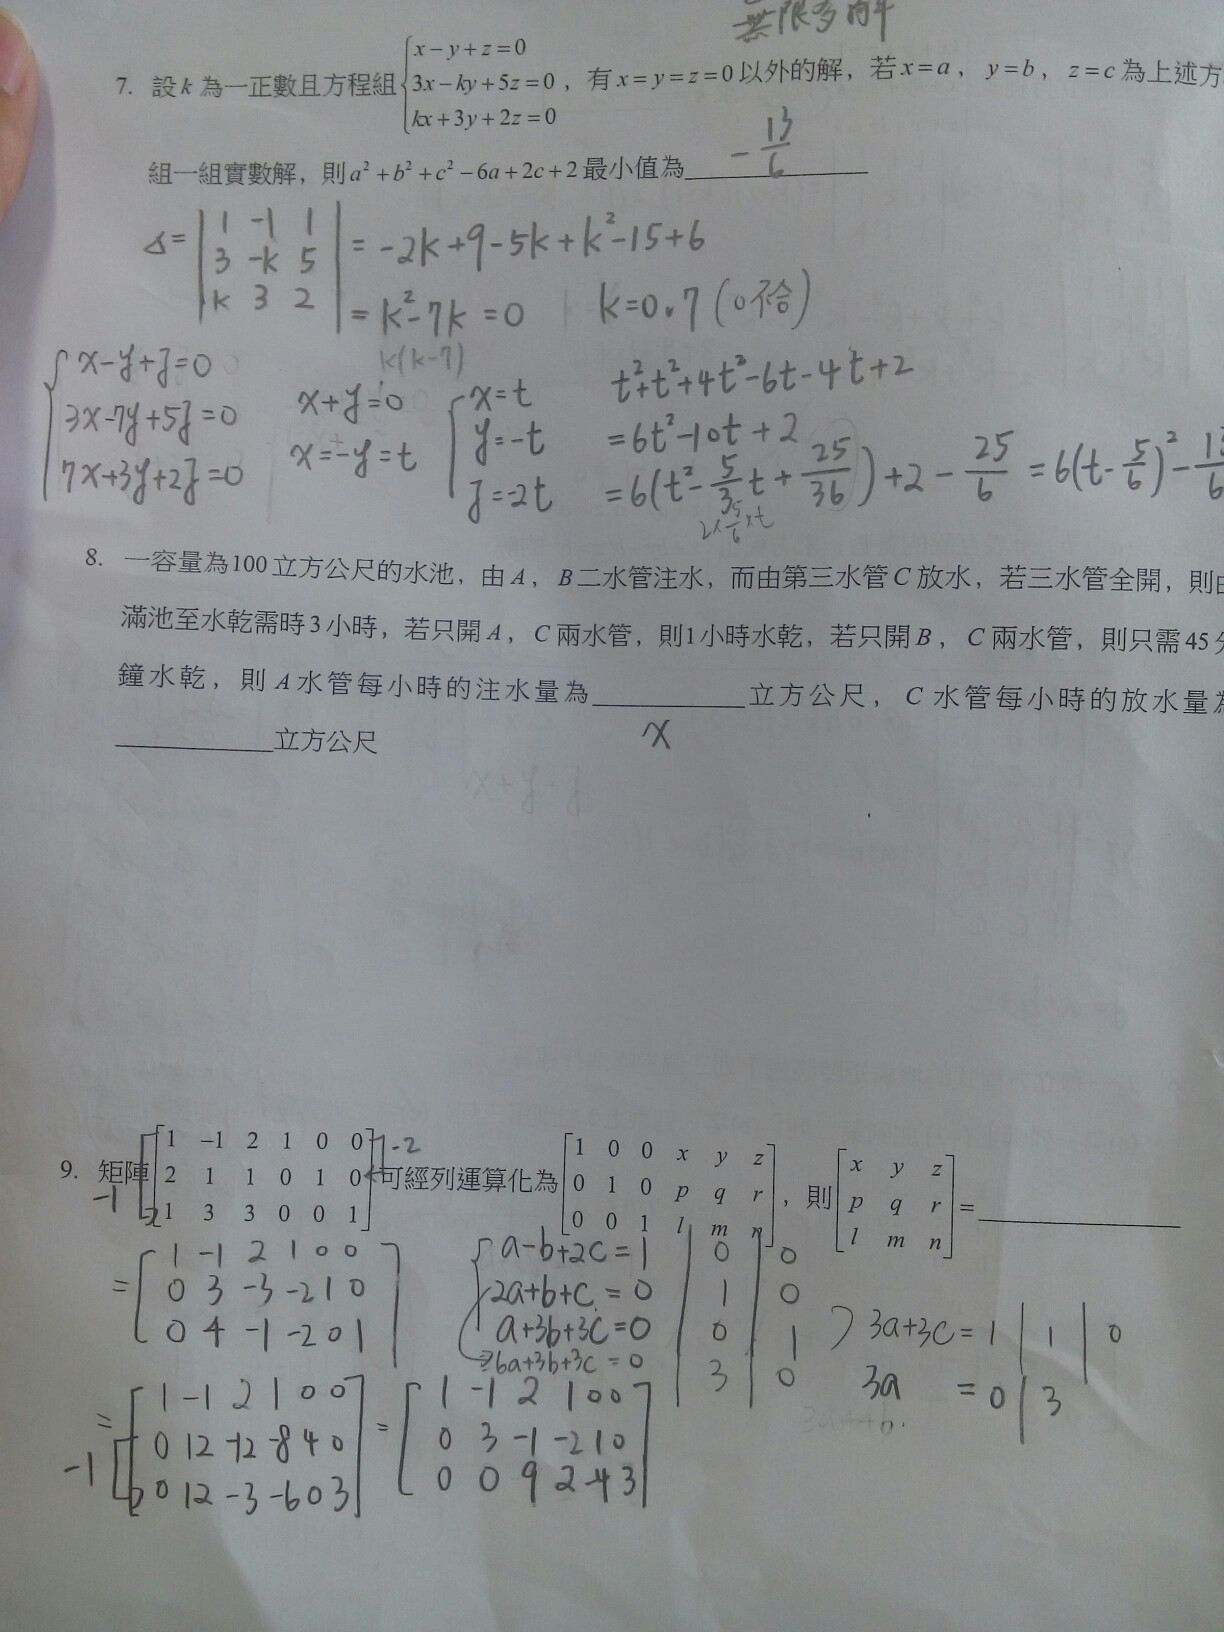 無限多解
7. 設k為一正數且方程組{x-y+z=0, 3x-ky+5z=0, kx+3y+2z=0,有x=y=z=0以外的解,若x=a,y=b,z=c為上述方
組一組實數解,則a²+b²+c²-6a+2c+2最小值為 -13/6
Δ=|1 -1 1| = -2k+9-5k+k²-15+6
|3 -k 5|
|k 3 2| = k²-7k=0 k=0,7(0不合)
k(k-7)
x-y+z=0 x+y=0 x=t t²+t²+4t²-6t-4t+2
3x-7y+5z=0 x=-y=t y=-t =6t²-10t+2
7x+3y+2z=0 z=-2t =6(t²-5/3t+25/36)+2-25/6=6(t-5/6)²-13/6
2×5/6×t
8. 一容量為100立方公尺的水池,由A,B二水管注水,而由第三水管C放水,若三水管全開,則由
滿池至水乾需時3小時,若只開A,C兩水管,則1小時水乾,若只開B,C兩水管,則只需45分
鐘水乾,則A水管每小時的注水量為________立方公尺,C水管每小時的放水量為
________立方公尺 x
x+y-z
9. 矩陣[1 -1 2 1 0 0; 2 1 1 0 1 0; 1 3 3 0 0 1]可經列運算化為[1 0 0 x y z; 0 1 0 p q r; 0 0 1 l m n],則[x y z; p q r; l m n]=________
-2
-1
=[1 -1 2 1 0 0 a-b+2c=1 | 0 | 0
0 3 -3 -2 1 0 2a+b+c=0 | 1 | 0
0 4 -1 -2 0 1] a+3b+3c=0 | 0 | 1 3a+3c=1 | 1 | 0
6a+3b+3c=0 | 3 | 0 3a =0 | 3
=[1 -1 2 1 0 0 =[1 -1 2 1 0 0
0 12 -12 -8 4 0 0 3 -1 -2 1 0
-1 0 12 -3 -6 0 3] 0 0 9 2 -4 3]